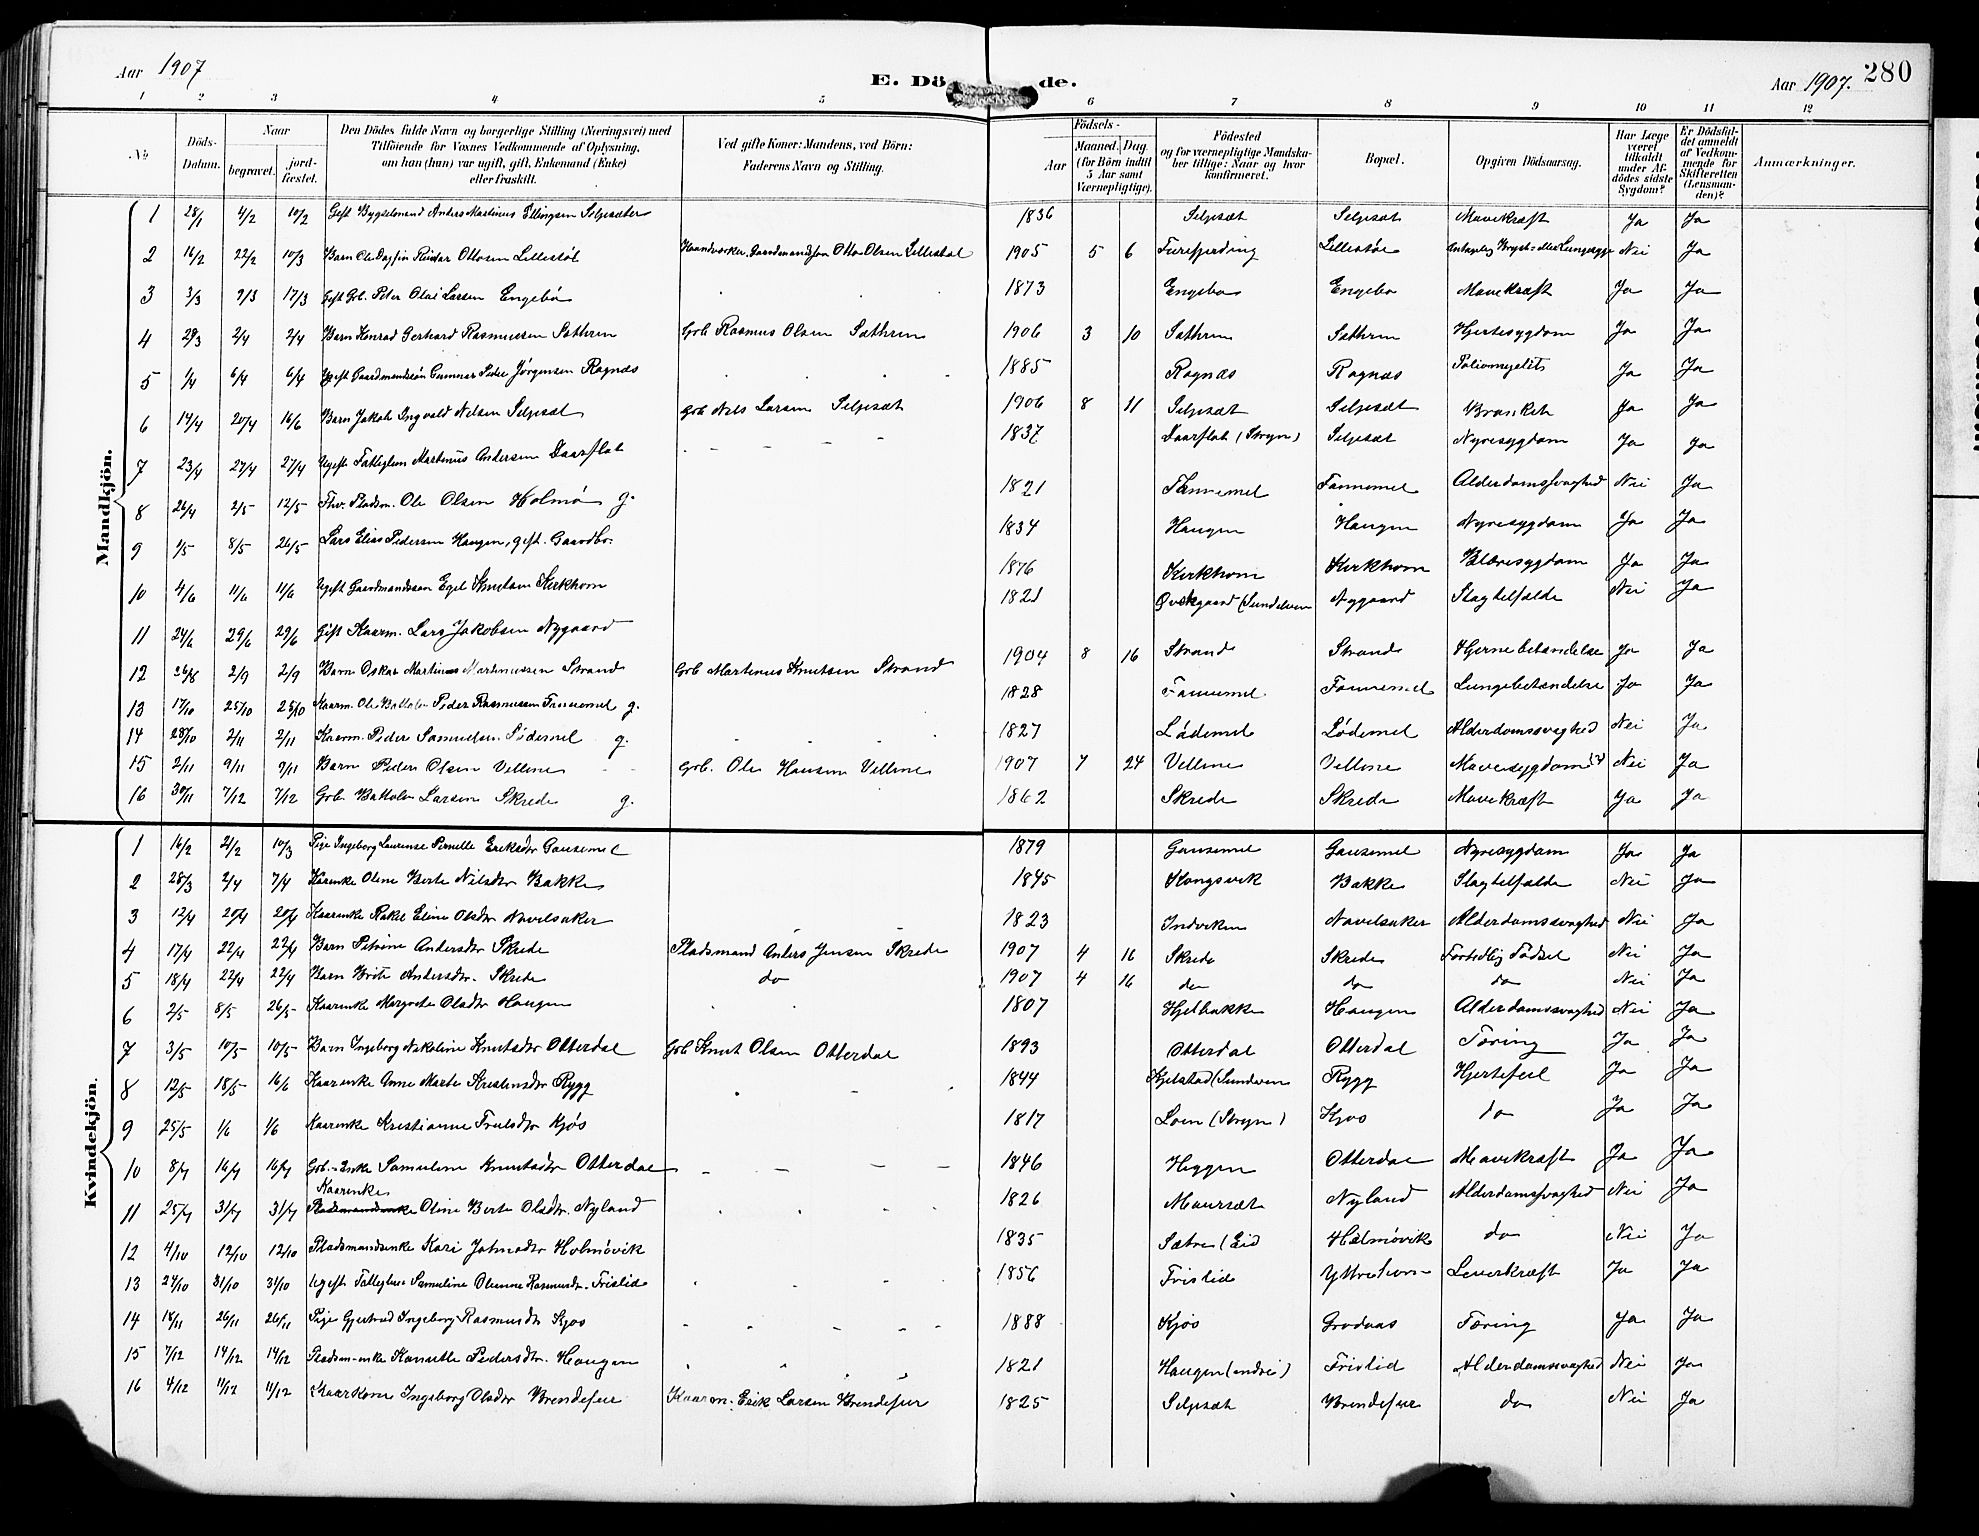 Aar 1907
E. Dö de.
Aar 1907.
280
1 2 3 4 5 6 7 8 9 10 11 12
No.
Döds-Datum.
Naar
begravet.
jord-fæstet.
Den Dödes fulde Navn og borgerlige Stilling (Næringsvei) med Tilföiende for Voxnes Vedkommende af Oplysning, om han (hun) var ugift, gift, Enkemand (Enke) eller fraskilt.
Ved gifte Koner: Mandens, ved Börn: Faderens Navn og Stilling.
Födsels-
Aar
Maaned. Dag. (for Börn indtil 5 Aar samt Værnepligtige).
Födested og for værnepligtige Mandskaber tillige: Naar og hvor konfirmeret.
Bopæl.
Opgiven Dödsaarsag.
Har Læge været tilkaldt under Afdödes sidste Sygdom?
Er Dödsfaldet anmeldt af Vedkommende for Skifteretten (Lensmanden)?
Anmærkninger.
Mandkjön.
1 28/1 4/2 10/2 Gift Bygselmand Anders Martinus Ellingsen Seljesæter 1836 Seljesæt Seljesæt Mavekræft Ja Ja
2 16/2 22/2 10/3 Barn Ole Dagfin Ottosen Lillestøl Haandverker. Gaardmandssøn Otto Olsen Lillestøl 1905 5 6 Lillestøl Nei Ja
3 3/3 9/3 17/3 Gift Gb. Peter Olai Larsen Engebø 1873 Engebø Engebø Mavekræft Ja Ja
4 29/3 2/4 2/4 Barn Konrad Gerhard Rasmussen Sæthren Grb Rasmus Olsen Sæthren 1906 3 10 Sæthren Sæthren Hjertesygdom Ja Ja
5 1/4 6/4 6/4 Ugift Gaardmandssøn Gunnar Peder Jørgensen Rognæs 1885 Rognæs Rognæs Poliomyelit Ja Ja
6 14/4 20/4 16/6 Barn Jakob Ingvald Nilsen Seljesæt Grb Nils Larsen Seljesæt 1906 8 11 Seljesæt Seljesæt Ja Ja
7 23/4 27/4 27/4 Ugift Fattiglem Martinus Andersen Daarflot 1837 Daarflot (Stryn) Seljesæt Nyresygdom Ja Ja
8 26/4 2/5 12/5 Fhv. Pladsm. Ole Olsen Holmø g. 1821 Tannemel Tannemel Alderdomssvaghed Nei Ja
9 1/5 8/5 26/5 Lars Elias Pedersen Haugen, gift. Gaardbr. 1834 Haugen Haugen Nyresygdom Ja Ja
10 4/6 11/6 11/6 Ugift Gaardmandssøn Egil Knutsen Kirkhorn 1876 Kirkhorn Kirkhorn Blæresygdom Ja Ja
11 24/6 29/6 29/6 Gift Kaarm. Lars Jakobsen Nygaard 1821 Nygaard Slagtilfælde Nei Ja
12 26/8 2/9 2/9 Barn Oskar Martinus Martinussen Strand Grb Martinus Knutsen Strand 1904 8 16 Strand Strand Hjernebetændelse Ja Ja
13 17/10 25/10 25/10 Kaarm. Ole Peder Rasmussen Tannemel g. 1828 Tannemel Tannemel Lungebetændelse Ja Ja
14 28/10 2/11 2/11 Kaarm. Peder Samuelsen Lødemel g. 1827 Lødemel Lødemel Alderdomssvaghed Nei Ja
15 2/11 9/11 9/11 Barn Peder Olsen Vellene Grb. Ole Hansen Vellene 1907 7 24 Vellene Vellene Mavesygdom Nei Ja
16 30/11 7/12 7/12 Grb. Larsen Skrede g. 1862 Skrede Skrede Mavekræft Ja Ja
Kvindekjön.
1 16/2 2/2 10/3 Pige Ingeborg Laurense Pernille Eriksdtr Gausemel 1879 Gausemel Gausemel Nyresygdom Ja Ja
2 28/3 2/4 7/4 Kaarenke Oline Berte Nilsdtr Bakke 1845 Kongsvik Bakke Slagtilfælde Nei Ja
3 12/4 20/4 20/4 Kaarenke Rakel Eline Olsdtr Navelsaker 1823 Indviken Navelsaker Alderdomssvaghed Nei Ja
4 17/4 22/4 22/4 Barn Petrine Andersdtr Skrede Pladsmand Anders Jensen Skrede 1907 4 16 Skrede Skrede Fortidlig Fødsel Nei Ja
5 18/4 22/4 22/4 Barn Brite Andersdtr. Skrede do 1907 4 16 do do do Nei Ja
6 2/5 8/5 26/5 Kaarenke Margrete Olsdtr Haugen 1807 Hjelbakke Haugen Alderdomssvaghed Nei Ja
7 3/5 10/5 10/5 Barn Ingeborg Nikoline Knutsdtr Otterdal Grb Knut Olsen Otterdal 1893 Otterdal Otterdal Tæring Ja Ja
8 12/5 18/5 16/6 Kaarenke Anne Marte Kristensdtr Rygg 1844 Rygg Hjertefeil Ja Ja
9 25/5 1/6 1/6 Kaarenke Kristianne Kjøs 1817 Loen (Stryn) Kjøs do Ja Ja
10 8/7 14/7 16/7 Grb.-Enke Samuline Knutsdtr Otterdal 1846 Heggen Otterdal Mavekræft Ja Ja
11 25/7 31/7 31/7 Kaarenke Oline Berte Olsdtr. Nyland 1826 Maursæt Nyland Alderdomssvaghed Nei Ja
12 4/10 12/10 12/10 Pladsmandsenke Kari Johnsdtr Holmøvik 1835 Sætre (Eid Holmøvik do Nei Ja
13 24/10 31/10 31/10 Ugift Samuline Olianne Rasmusdtr. Frislid 1856 Frislid Leverkræft Ja Ja
14 18/11 26/11 26/11 Pige Gjertrud Ingeborg Rasmusdtr Kjøs 1888 Kjøs Grodaas Tæring Ja Ja
15 7/12 14/12 14/12 Pladsm-enke Pedersdtr. Haugen 1821 Haugen (indre) Frislid Alderdomssvaghed Nei Ja
16 4/12 11/12 11/12 Kaarkone Ingeborg Olsdtr Brendefur Kaarm. Erik Larsen Brendefur 1825 Seljesæt Brendefur do Nei Ja